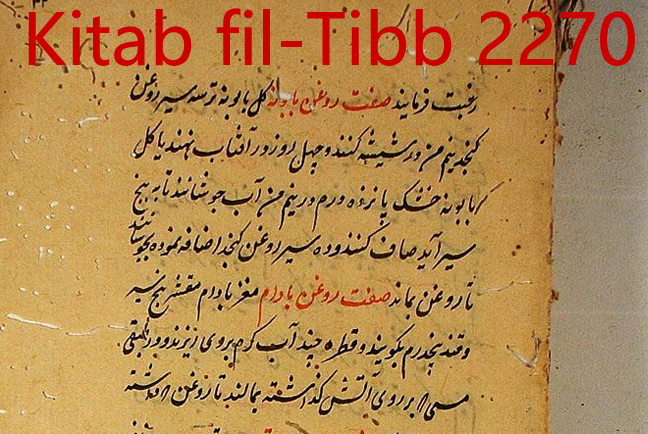 Kitab fil-Tibb 2270
رغبت فرمایند صفت روغن بابونه گل بابونه تر سه سیر روغن
کنجد نیم من در شیشه کنند و چهل روز در آفتاب نهند یا گل
بابونه خشک پانزده درم در نیم من آب جوشانند تا به پنج
سیر آید صاف کنند و ده سیر روغن کنجد اضافه نموده بجوشانند
تا روغن بماند صفت روغن بادام مغز بادام مقشر پنج سیر
و قند پنجدرم بکوبند و قطره چند آب گرم بروی ریزند و در طبقی
مسی بر روی آتش گذاشته بمالند تا روغن